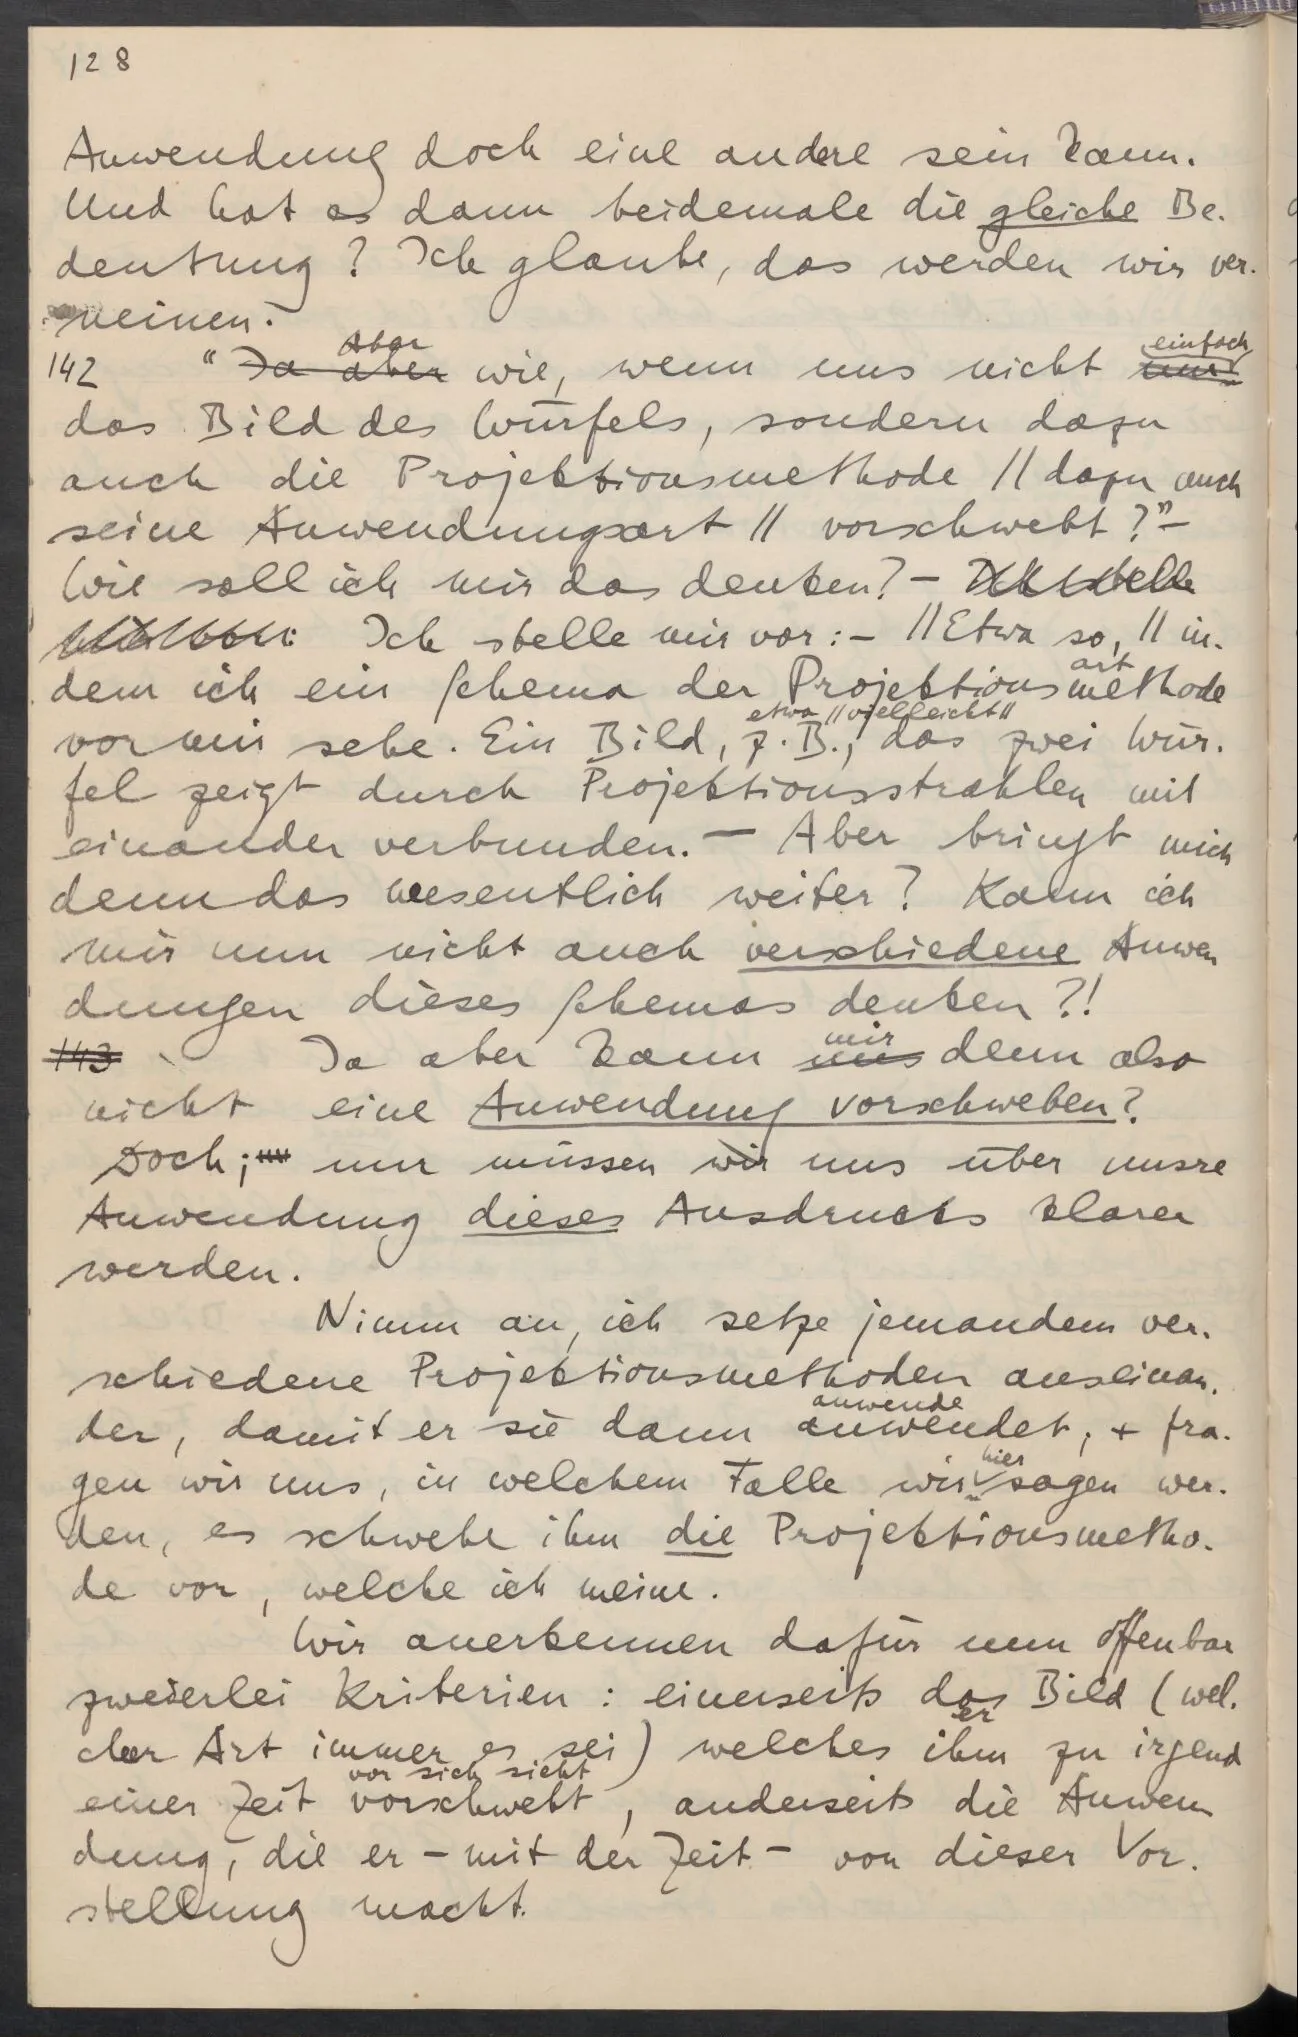 128
Anwendung doch eine andere sein kann.
Und hat es dann beidemale die gleiche Be-
deutung? Ich glaube, das werden wir ver-
neinen.
Aber einfach
142 "Ja aber wie, wenn uns nicht nur
das Bild des Würfels, sondern dazu
auch die Projektionsmethode // dazu auch
seine Anwendungsart // vorschwebt?" –
Wie soll ich mir das denken? – Ich stelle
Ich stelle mir vor: – // Etwa so, // in-
art
dem ich ein Schema der Projektionsmethode
etwa // vielleicht //
vor mir sehe. Ein Bild, z.B., das zwei Wür-
fel zeigt durch Projektionsstrahlen mit
einander verbunden. – Aber bringt mich
denn das wesentlich weiter? Kann ich
mir nun nicht auch verschiedene Anwen
dungen dieses Schemas denken?!
mir
143 Ja aber kann uns denn also
nicht eine Anwendung vorschweben?
Doch; nur müssen wir uns über unsre
Anwendung dieses Ausdrucks klarer
werden.
Nimm an, ich setze jemandem ver-
schiedene Projektionsmethoden auseinan-
anwende
der, damit er sie dann anwendet, + fra-
hier
gen wir uns, in welchem Falle wir sagen wer-
den, es schwebe ihm die Projektionsmetho-
de vor, welche ich meine.
Wir anerkennen dafür nun offenbar
zweierlei Kriterien: einerseits das Bild (wel-
er
cher Art immer es sei) welches ihm zu irgend
vor sich sieht
einer Zeit vorschwebt, anderseits die Anwen
dung, die er – mit der Zeit – von dieser Vor-
stellung macht.